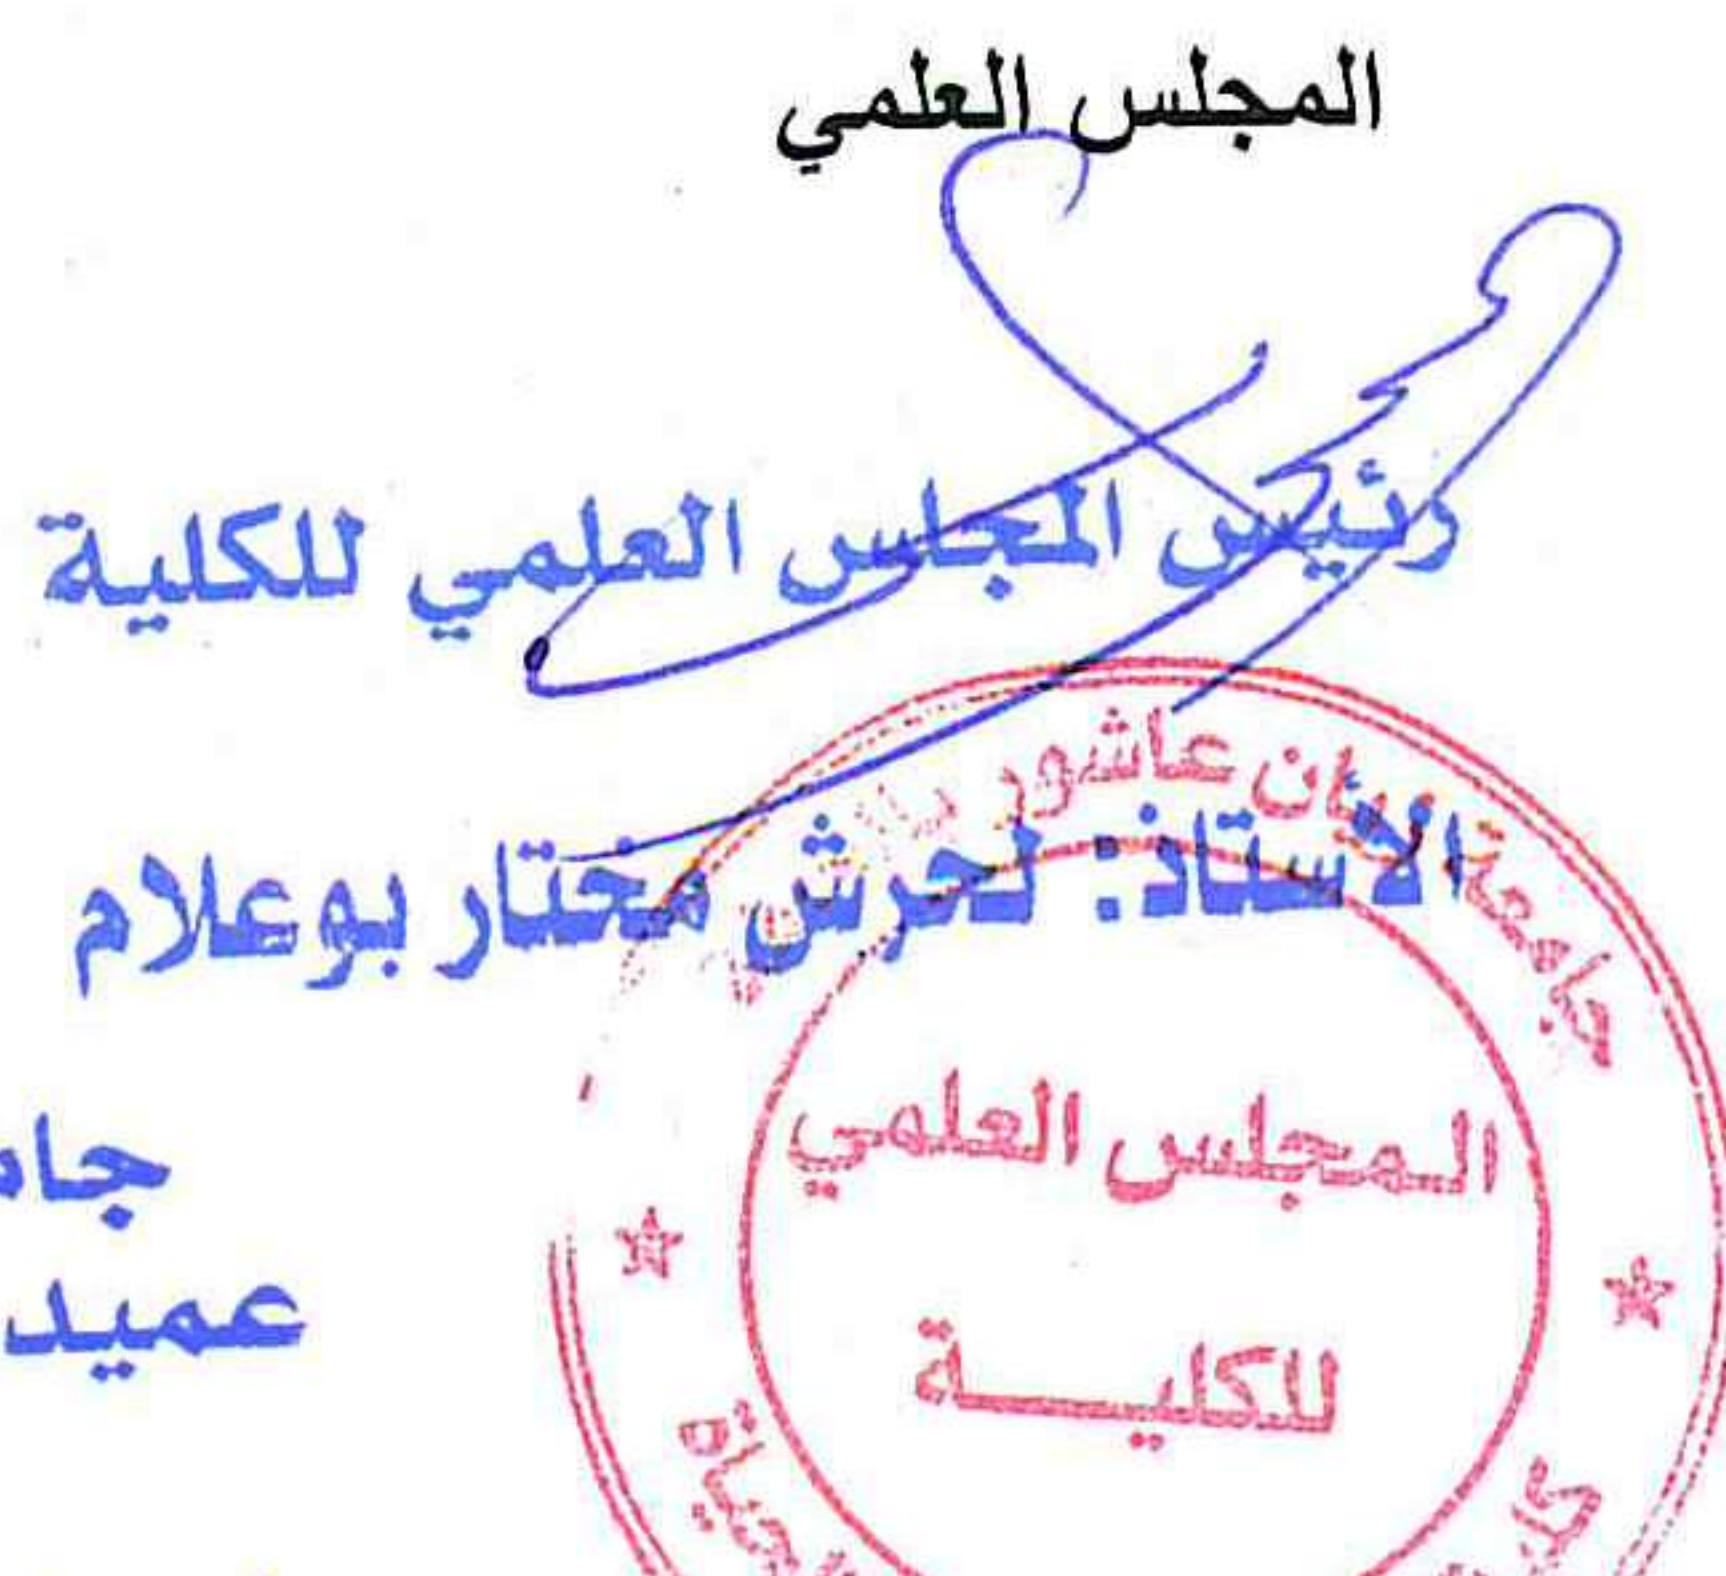 المجلس العلمي
رئيس المجلس العلمي للكلية
الأستاذ: لحرش مختار بوعلام
جامعة زيان عاشور
المجلس العلمي
للكليـــة
عميد